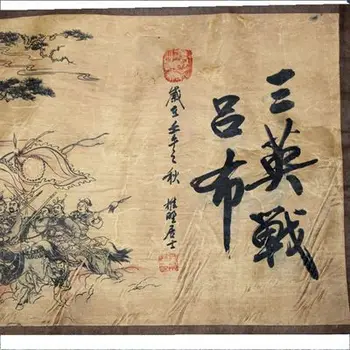 三英戰
呂布
歲立壬午之秋
雅墅居士